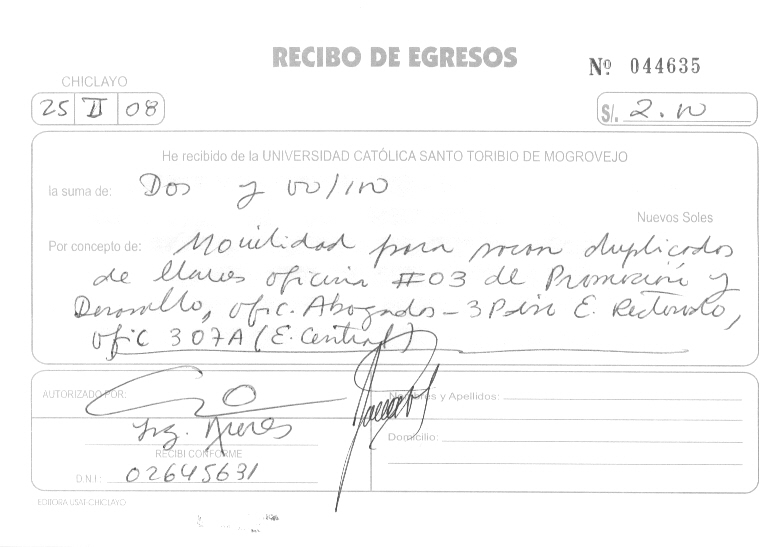 RECIBO DE EGRESOS
Nº 044635
CHICLAYO
25 II 08
S/. 2.00
He recibido de la UNIVERSIDAD CATÓLICA SANTO TORIBIO DE MOGROVEJO
la suma de: Dos y 00/100
Nuevos Soles
Por concepto de: Movilidad para sacar duplicados
de llaves oficina #03 de Promoción y
Desarrollo, ofic. Abogados - 3 Piso E. Rectorado,
ofic 307A (E. Central)
AUTORIZADO POR:
Ing.
RECIBI CONFORME
D.N.I.: 02645631
Nombres y Apellidos:
Domicilio:
EDITORA USAT-CHICLAYO